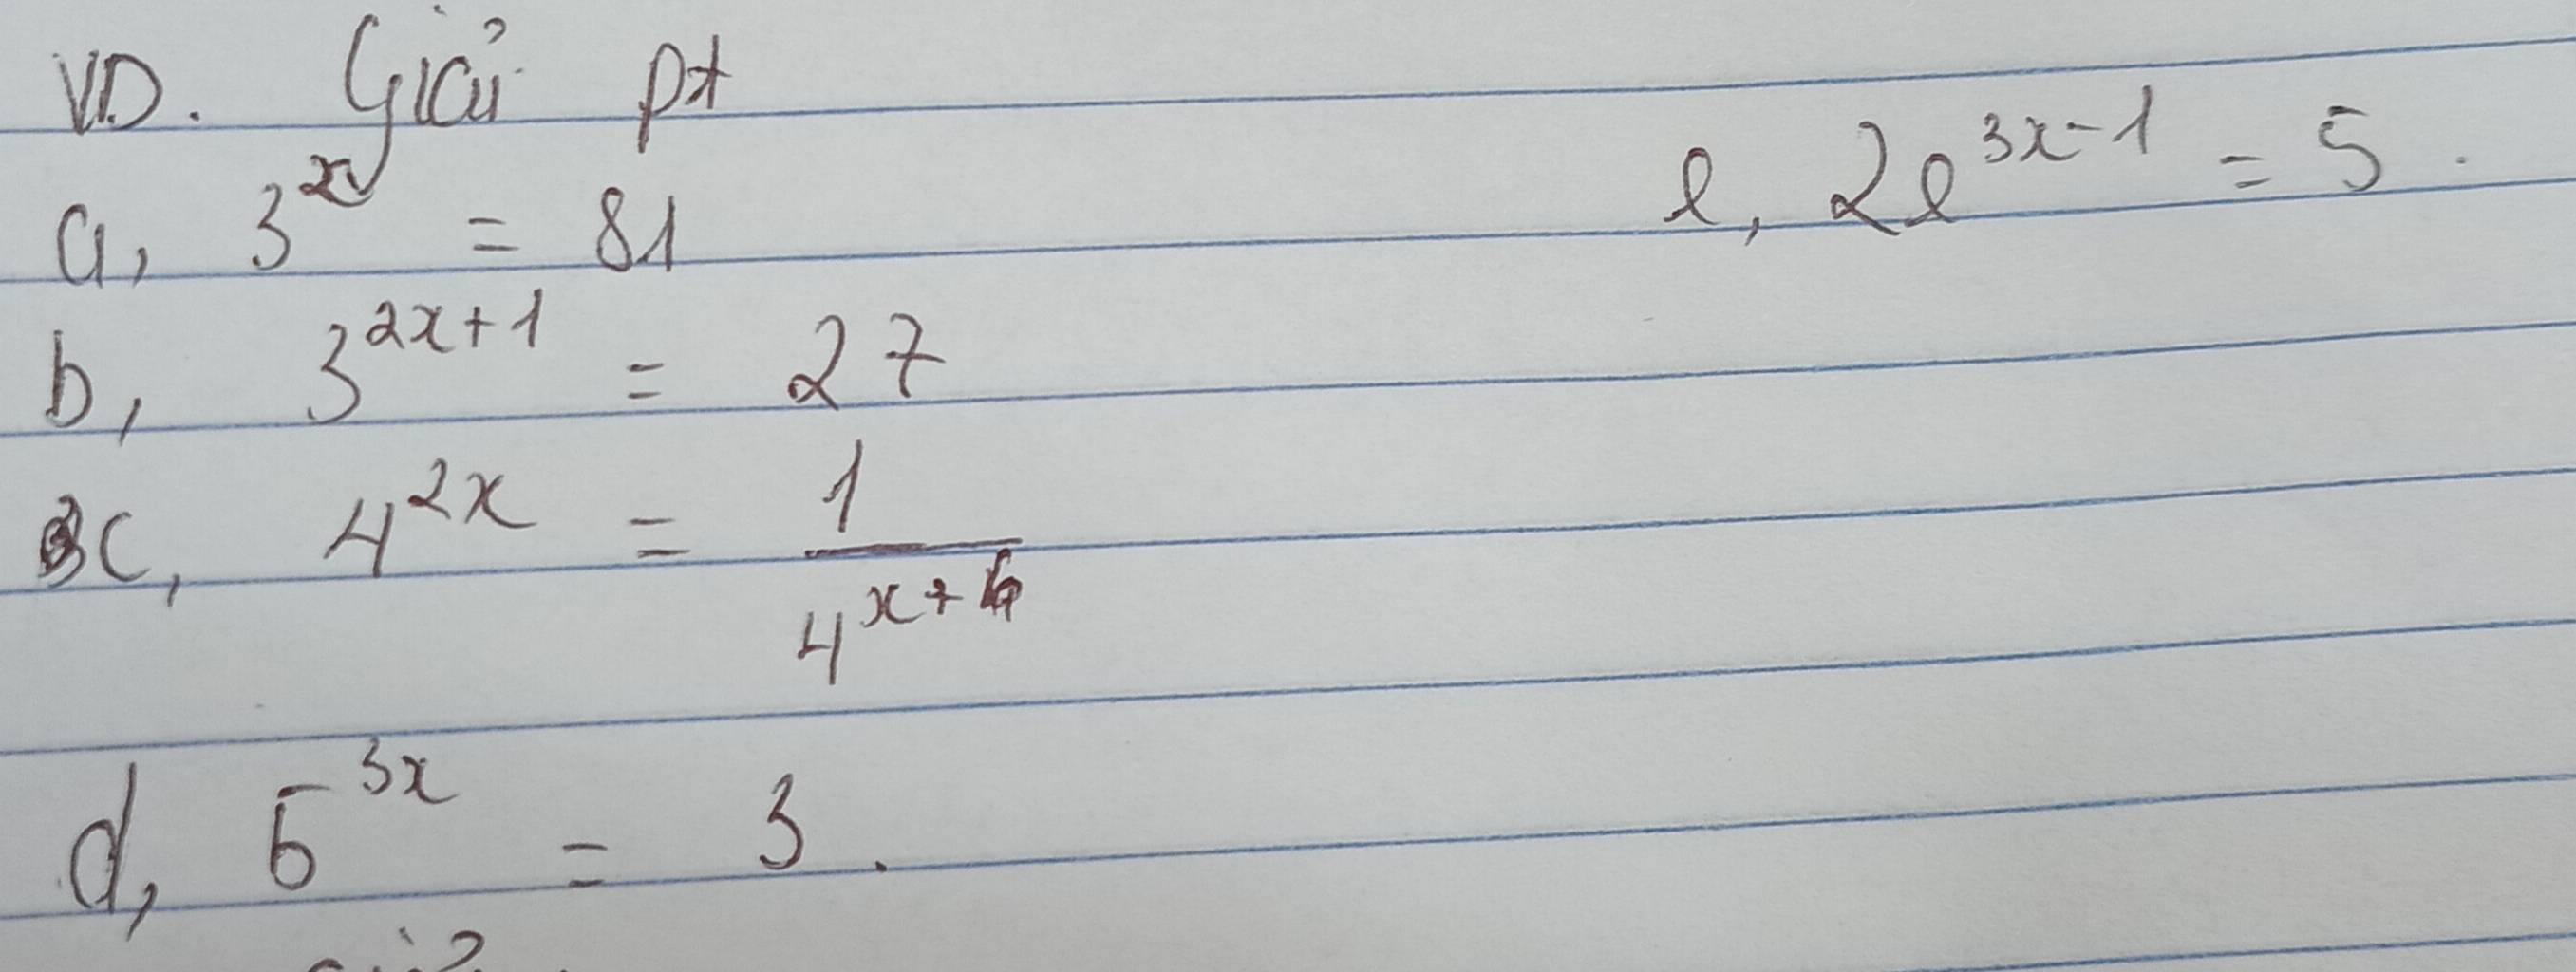 VD. Giải pt
a, 3^x = 81
b, 3^{2x+1} = 27
c, 4^{2x} = \frac{1}{4^{x+6}}
d, 5^{3x} = 3.
e, 2e^{3x-1} = 5.